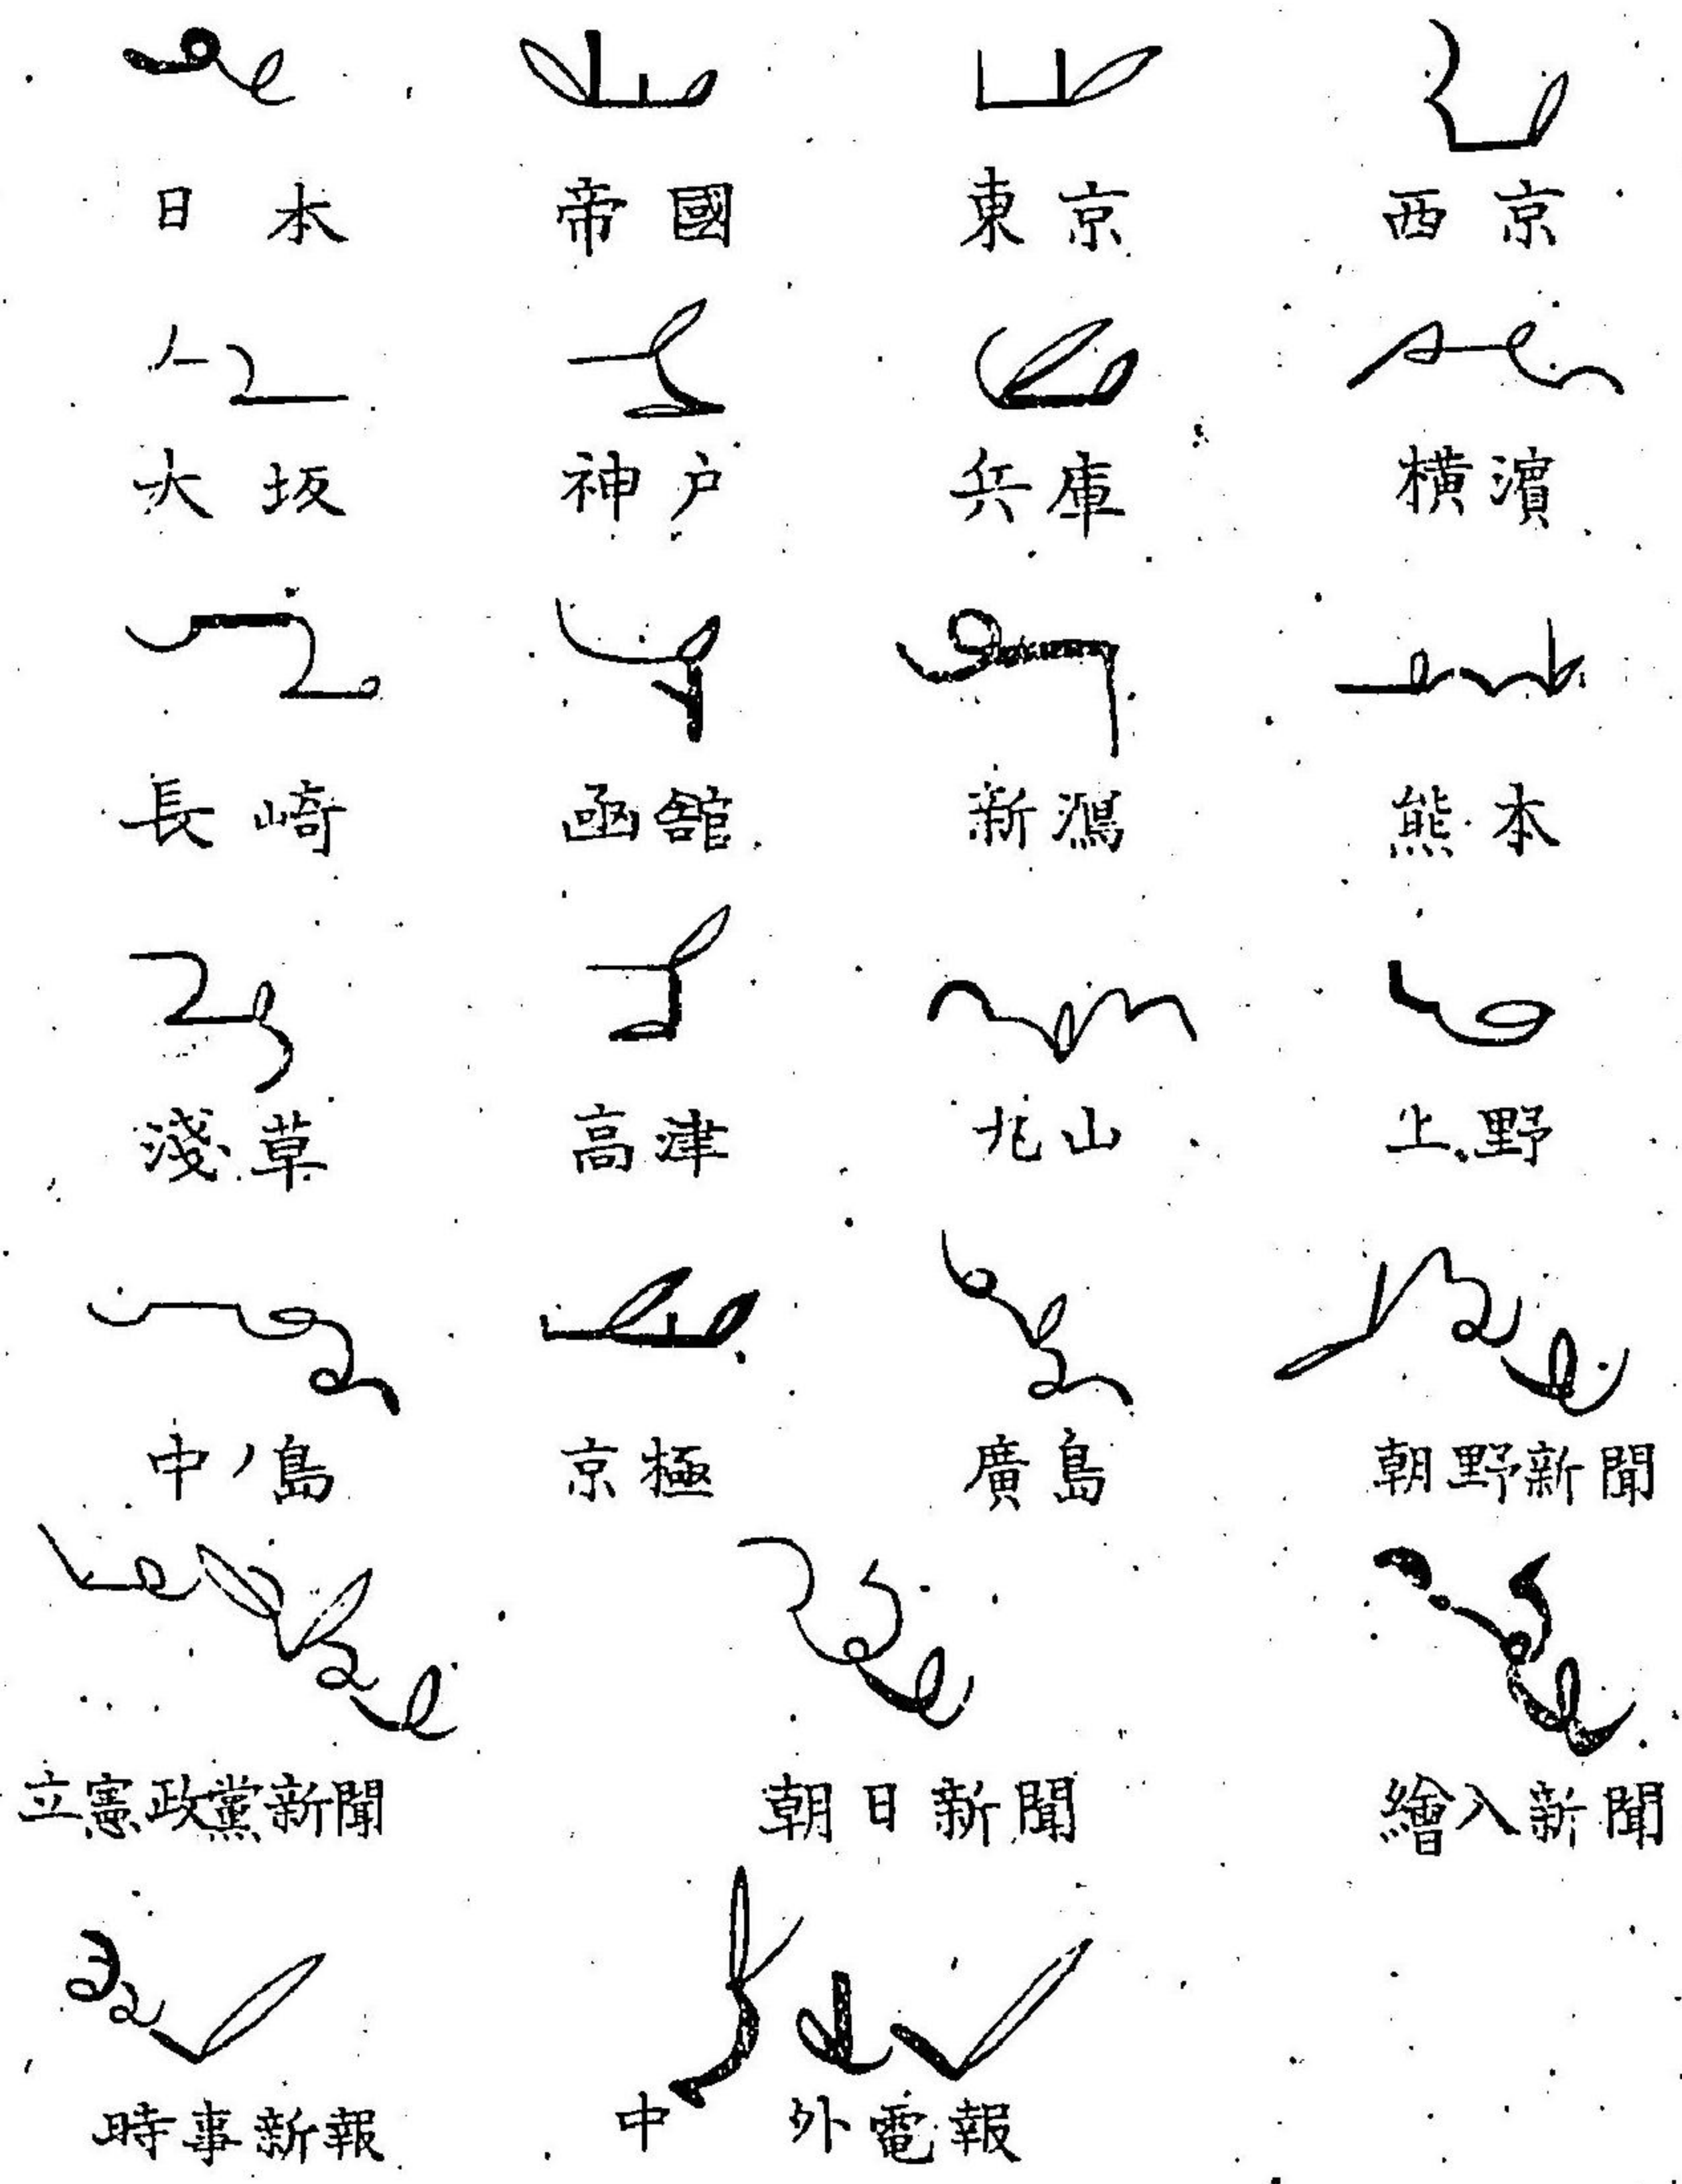 日本 帝國 東京 西京
大坂 神戸 兵庫 横濱
長崎 函館 新潟 熊本
淺草 高津 北山 上野
中ノ島 京極 廣島 朝野新聞
立憲政黨新聞 朝日新聞 繪入新聞
時事新報 中外電報